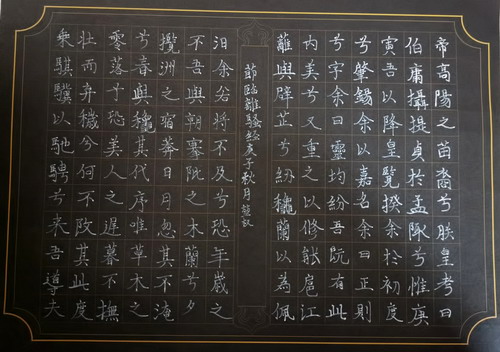 帝高陽之苗裔兮朕皇考曰
伯庸攝提貞於孟陬兮惟庚
寅吾以降皇覽揆余於初度
兮肇錫余以嘉名余曰正則
兮字余曰靈均紛吾既有此
內美兮又重之以修能扈江
離與辟芷兮紉穐蘭以為佩
節臨離騷經庚子秋月
汩余若將不及兮恐年歲之
不吾與朝搴阰之木蘭兮夕
攬洲之宿莽日月忽其不淹
兮春與穐其代序唯草木之
零落兮恐美人之遲暮不撫
壯而弃穢兮何不改其此度
乘騏驥以馳騁兮來吾導夫